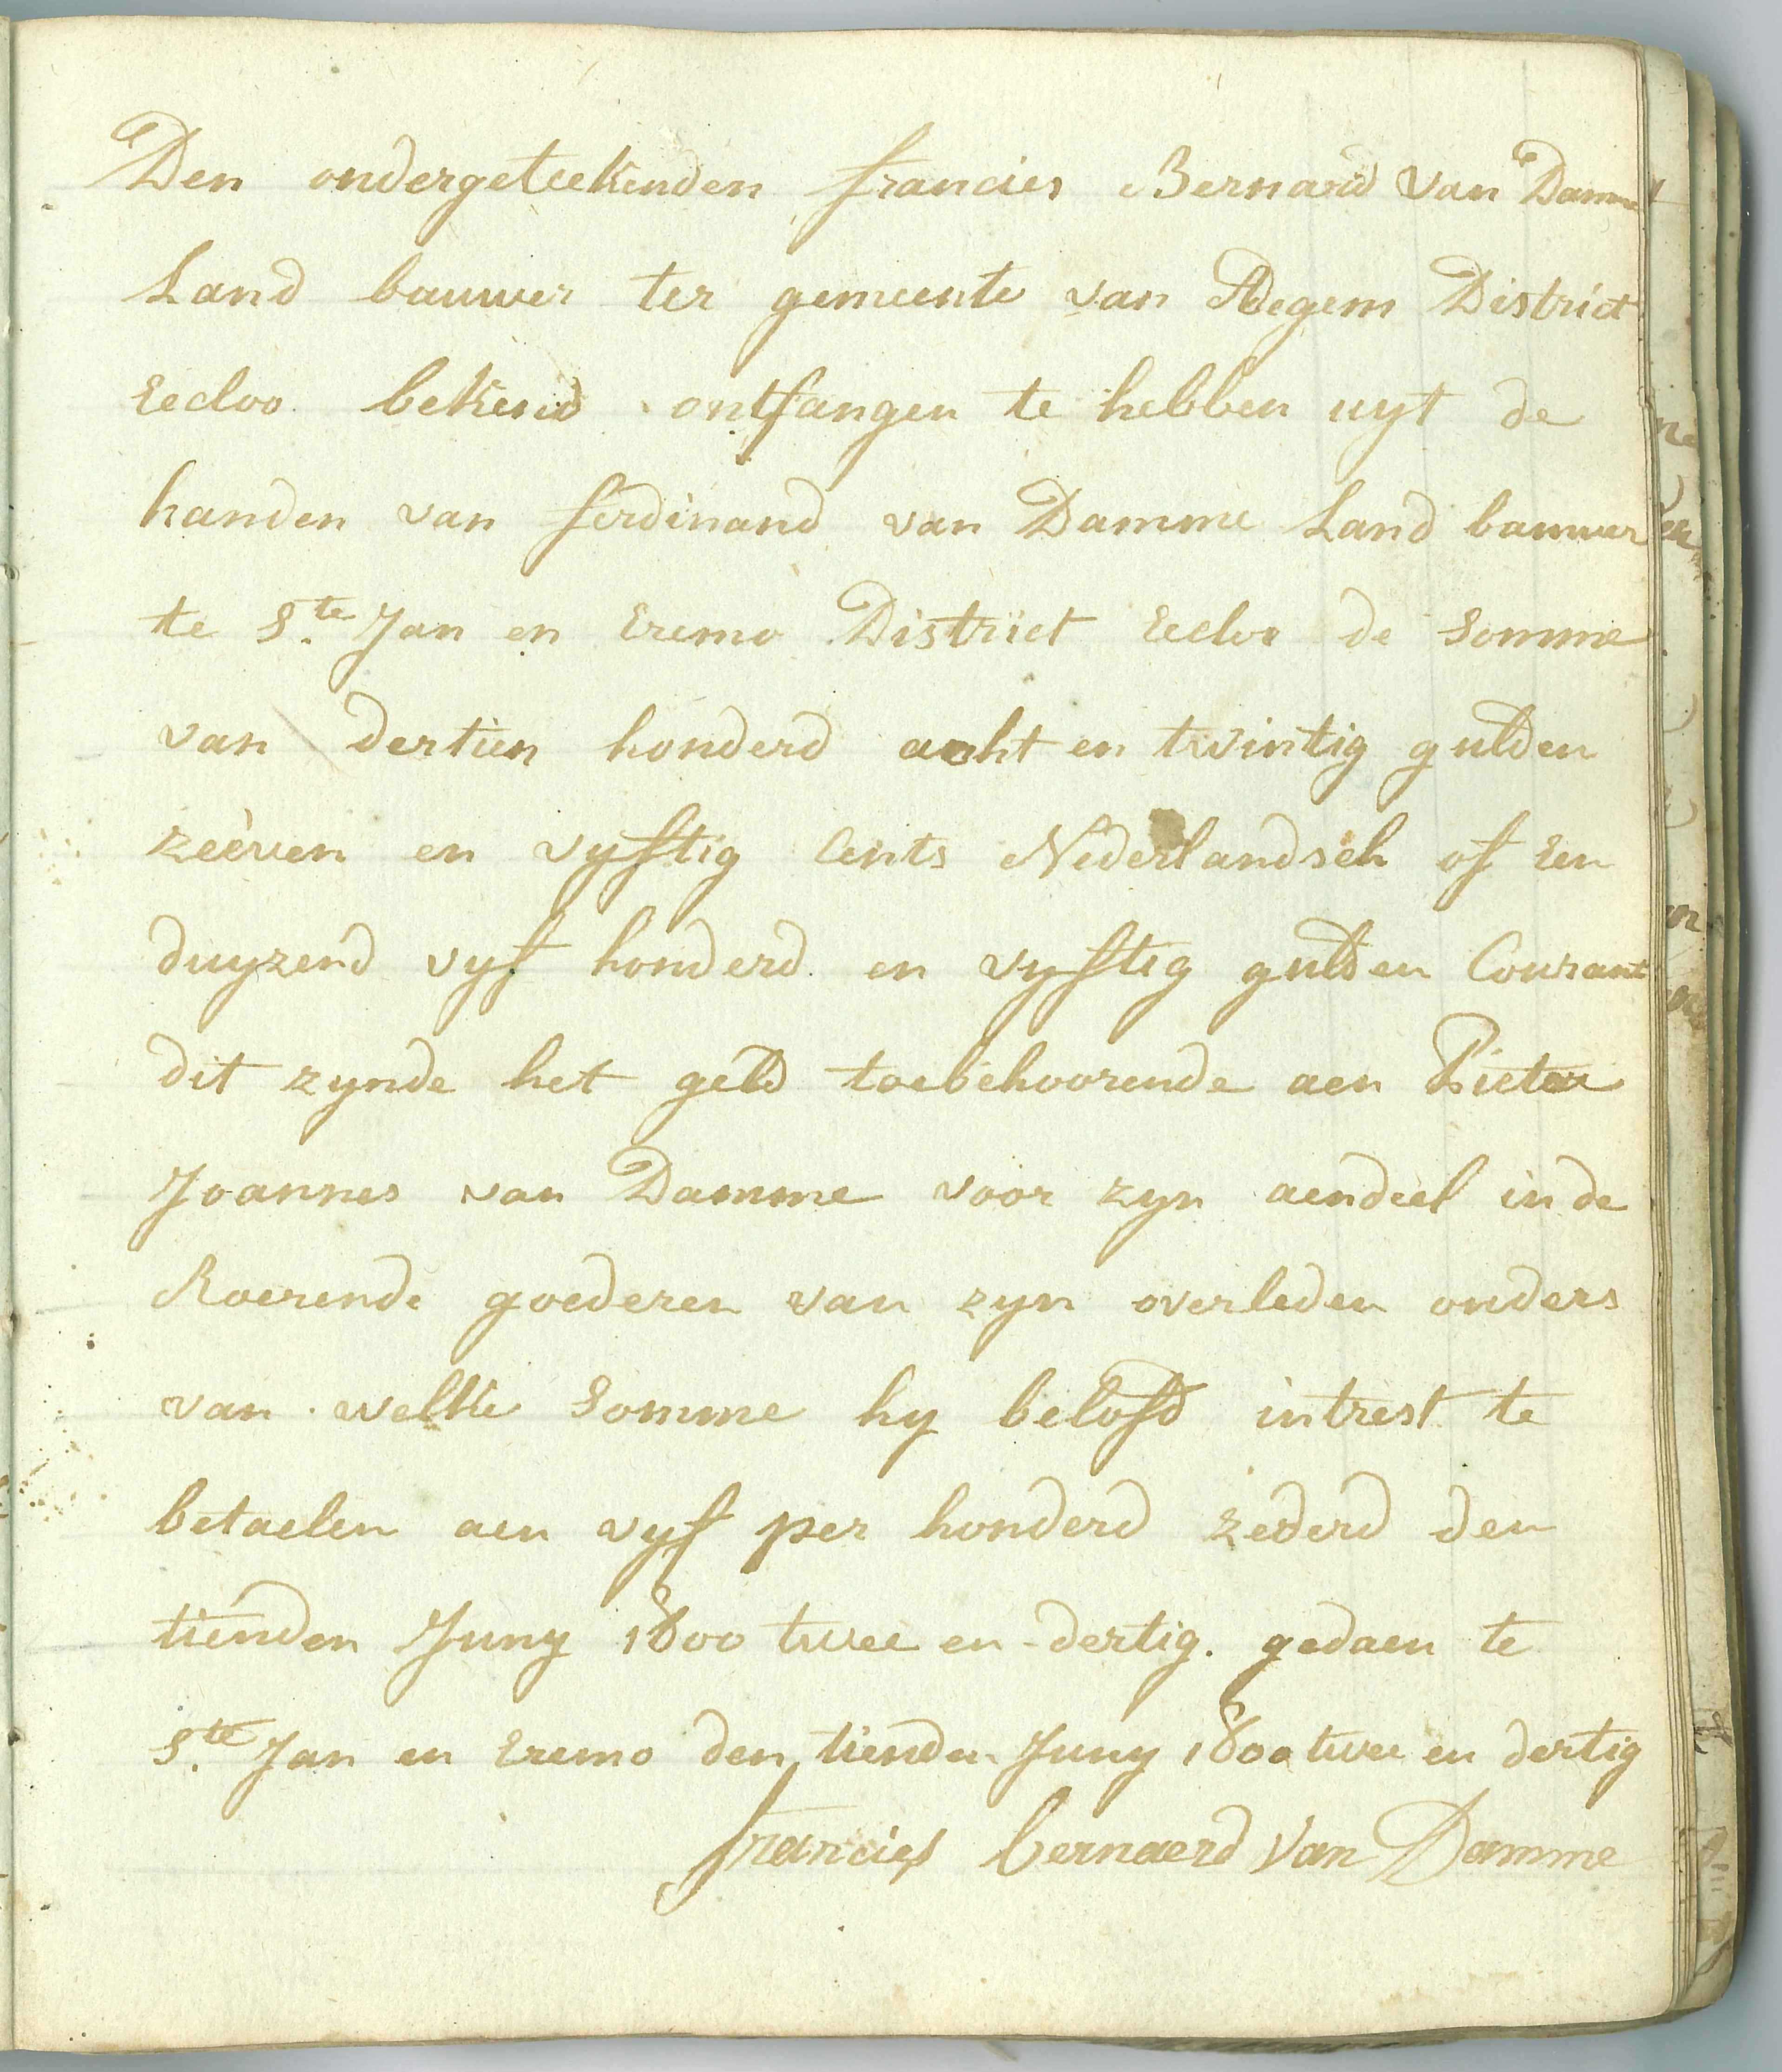 Den ondergeteekenden francies Bernard van Damme
Land bauwer ter gemeente van Adegem District
Eecloo bekend ontfangen te hebben uyt de
handen van ferdinand van Damme Land bauwer
te Ste Jan en Eremo District Eecloo de Somme
van dertien honderd acht en twintig gulden
zeèven en vyftig Cents Nederlandsch of Een
duyzend vyf honderd en vyftig gulden Courant
dit zynde het geld toebehoorende aen Pieter
Joannes van Damme voor zyn aendeel in de
Roerende goederen van zyn overleden ouders
van welke Somme hy belofd intrest te
betaelen aen vyf per honderd zederd den
tienden Juny 1800 twee en dertig. gedaen te
Ste Jan en Eremo den tienden Juny 1800 twee en dertig
francies bernaerd Van Damme